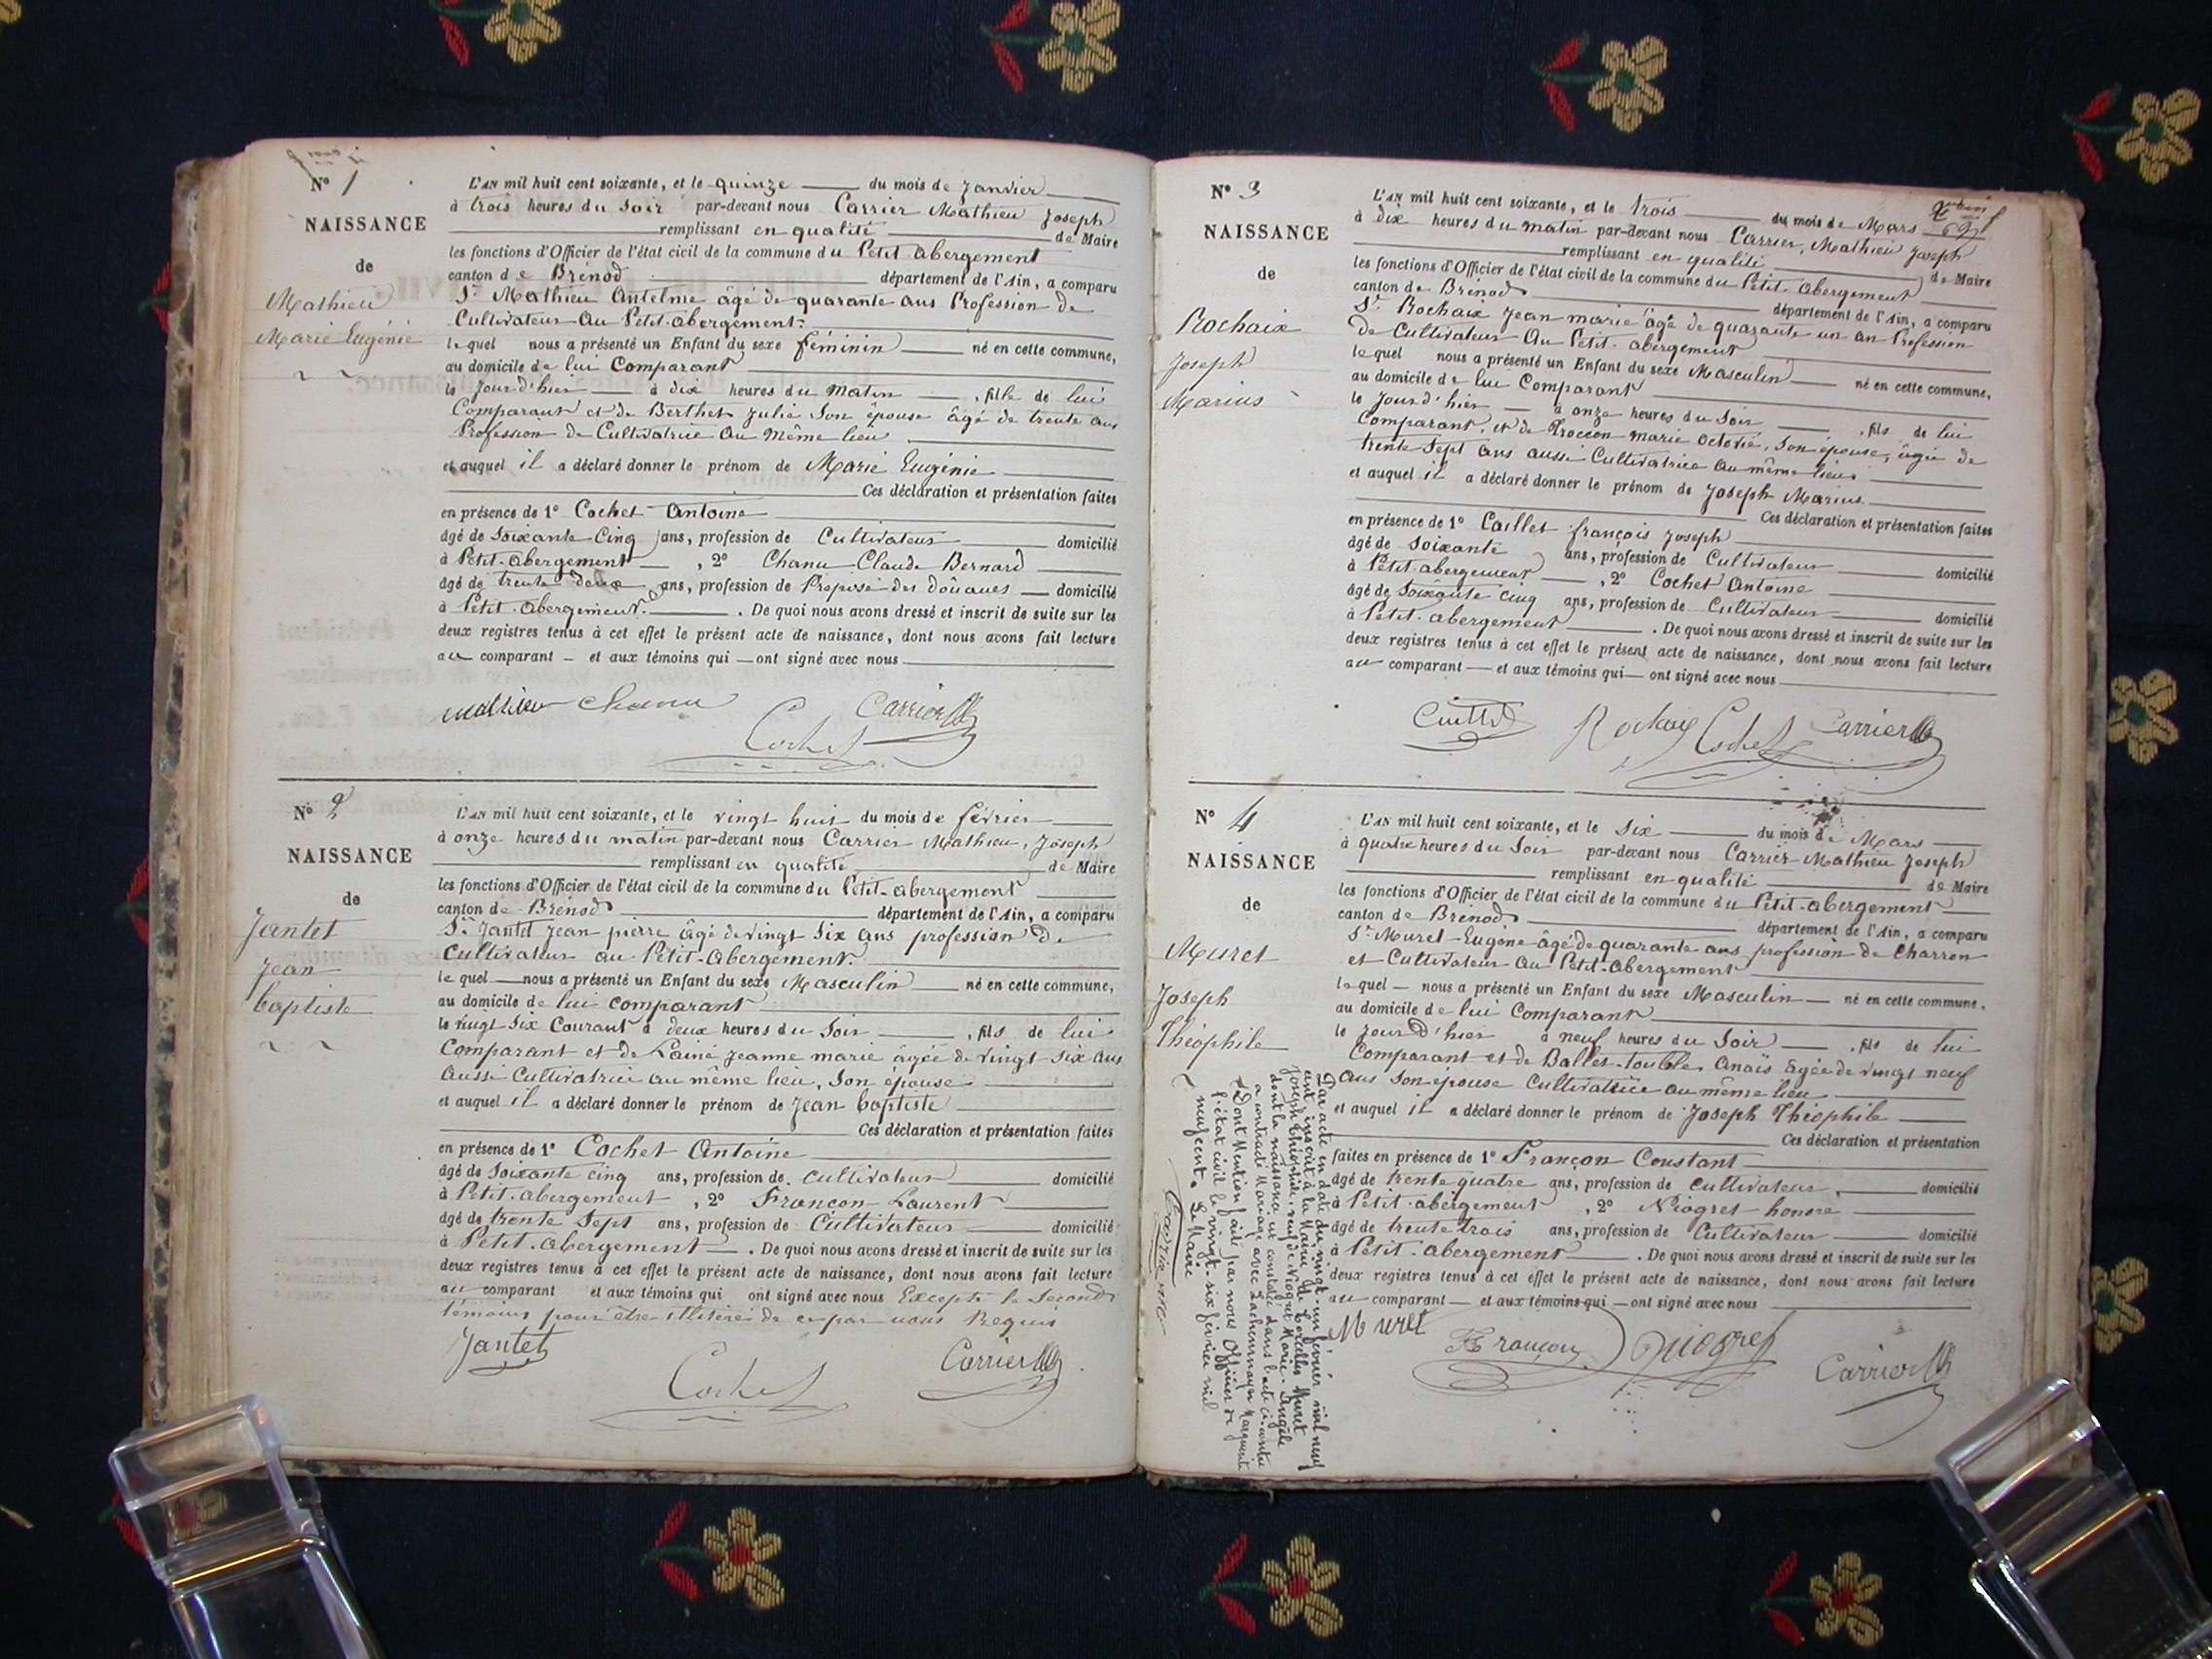 N° 1
NAISSANCE
de
Mathieu
Marie Eugénie
L'AN mil huit cent soixante, et le quinze du mois de Janvier
à trois heures du Soir par-devant nous Carrier Mathieu Joseph
remplissant en qualité de Maire
les fonctions d'Officier de l'état civil de la commune du Petit abergement
canton de Brénod département de l'Ain, a comparu
Sr Mathieu Antelme âgé de quarante ans Profession de
Cultivateur Au Petit-abergement.
lequel nous a présenté un Enfant du sexe féminin né en cette commune,
au domicile de lui Comparant
le Jour d'hier à dix heures du Matin, fille de lui
Comparant et de Berthet Julie Son épouse âgé de trente ans
Profession de Cultivatrice Au Même lieu
et auquel il a déclaré donner le prénom de Marie Eugénie
Ces déclaration et présentation faites
en présence de 1° Cochet Antoine
âgé de Soixante Cinq ans, profession de Cultivateur domicilié
à Petit-abergement, 2° Chanu Claude Bernard
âgé de trente deux ans, profession de Préposé des douanes domicilié
à Petit-abergement. De quoi nous avons dressé et inscrit de suite sur les
deux registres tenus à cet effet le présent acte de naissance, dont nous avons fait lecture
au comparant et aux témoins qui ont signé avec nous
mathieu Chanu Cochet Carrier
N° 2
NAISSANCE
de
Jantet
Jean
baptiste
L'AN mil huit cent soixante, et le vingt huit du mois de février
à onze heures du matin par-devant nous Carrier Mathieu, Joseph
remplissant en qualité de Maire
les fonctions d'Officier de l'état civil de la commune du Petit-abergement
canton de Brénod département de l'Ain, a comparu
Sr Jantet Jean pierre âgé de vingt Six ans profession de
Cultivateur au Petit-Abergement.
lequel nous a présenté un Enfant du sexe Masculin né en cette commune,
au domicile de lui comparant
le vingt Six Courant à deux heures du Soir, fils de lui
Comparant et de Lainé Jeanne marie âgée de vingt-six ans
Aussi Cultivatrice au même lieu, Son épouse
et auquel il a déclaré donner le prénom de Jean baptiste
Ces déclaration et présentation faites
en présence de 1° Cochet Antoine
âgé de Soixante cinq ans, profession de cultivateur domicilié
à Petit-abergement, 2° Françon Laurent
âgé de trente Sept ans, profession de Cultivateur domicilié
à Petit-abergement. De quoi nous avons dressé et inscrit de suite sur les
deux registres tenus à cet effet le présent acte de naissance, dont nous avons fait lecture
au comparant et aux témoins qui ont signé avec nous Excepté le Second
témoins pour être illitéré de ce par nous Requis
Jantet Cochet Carrier
N° 3
NAISSANCE
de
Rochaix
Joseph
Marius
L'AN mil huit cent soixante, et le trois du mois de Mars
à dix heures du matin par-devant nous Carrier, Mathieu Joseph
remplissant en qualité de Maire
les fonctions d'Officier de l'état civil de la commune du Petit-abergement
canton de Brénod département de l'Ain, a comparu
Sr Rochaix Jean marie âgé de quarante un an Profession
de Cultivateur Au Petit-abergement
lequel nous a présenté un Enfant du sexe Masculin né en cette commune,
au domicile de lui Comparant
le Jour d'hier à onze heures du Soir, fils de lui
Comparant, et de Troccon marie Octavie, Son épouse, âgée de
trente Sept ans aussi Cultivatrice au même lieu
et auquel il a déclaré donner le prénom de Joseph Marius
Ces déclaration et présentation faites
en présence de 1° Caillet françois Joseph
âgé de Soixante ans, profession de Cultivateur domicilié
à Petit-abergement, 2° Cochet Antoine
âgé de Soixante cinq ans, profession de Cultivateur domicilié
à Petit-abergement. De quoi nous avons dressé et inscrit de suite sur les
deux registres tenus à cet effet le présent acte de naissance, dont nous avons fait lecture
au comparant et aux témoins qui ont signé avec nous
Rochaix Cochet Carrier
N° 4
NAISSANCE
de
Muret
Joseph
Théophile
L'AN mil huit cent soixante, et le Six du mois de Mars
à quatre heures du Soir par-devant nous Carrier Mathieu Joseph
remplissant en qualité de Maire
les fonctions d'Officier de l'état civil de la commune du Petit-abergement
canton de Brénod département de l'Ain, a comparu
Sr Muret Eugène âgé de quarante ans profession de Charron
et Cultivateur Au Petit-Abergement
lequel nous a présenté un Enfant du sexe Masculin né en cette commune.
au domicile de lui Comparant
le Jour d'hier à neuf heures du Soir, fils de lui
Comparant et de Ballet-Toubles Anaïs âgée de vingt neuf
ans Son épouse Cultivatrice au même lieu
et auquel il a déclaré donner le prénom de Joseph Théophile
Ces déclaration et présentation
faites en présence de 1° Françon Constant
âgé de trente quatre ans, profession de cultivateur, domicilié
à Petit-abergement, 2° Niogret honoré
âgé de trente trois ans, profession de Cultivateur domicilié
à Petit-abergement. De quoi nous avons dressé et inscrit de suite sur les
deux registres tenus à cet effet le présent acte de naissance, dont nous avons fait lecture
au comparant et aux témoins qui ont signé avec nous
Muret Françon Niogret Carrier
Par acte en date du vingt-un février mil neuf
cent inscrit à la Mairie de Corcelles Muret
Joseph Théophile, veuf de Niogret Marie-Angèle
dont la naissance est constatée dans l'acte ci-contre
a contracté Mariage avec Marguerite
Dont Mention faite par nous Officier de
l'état civil le vingt-six février mil
neuf cent. Le Maire